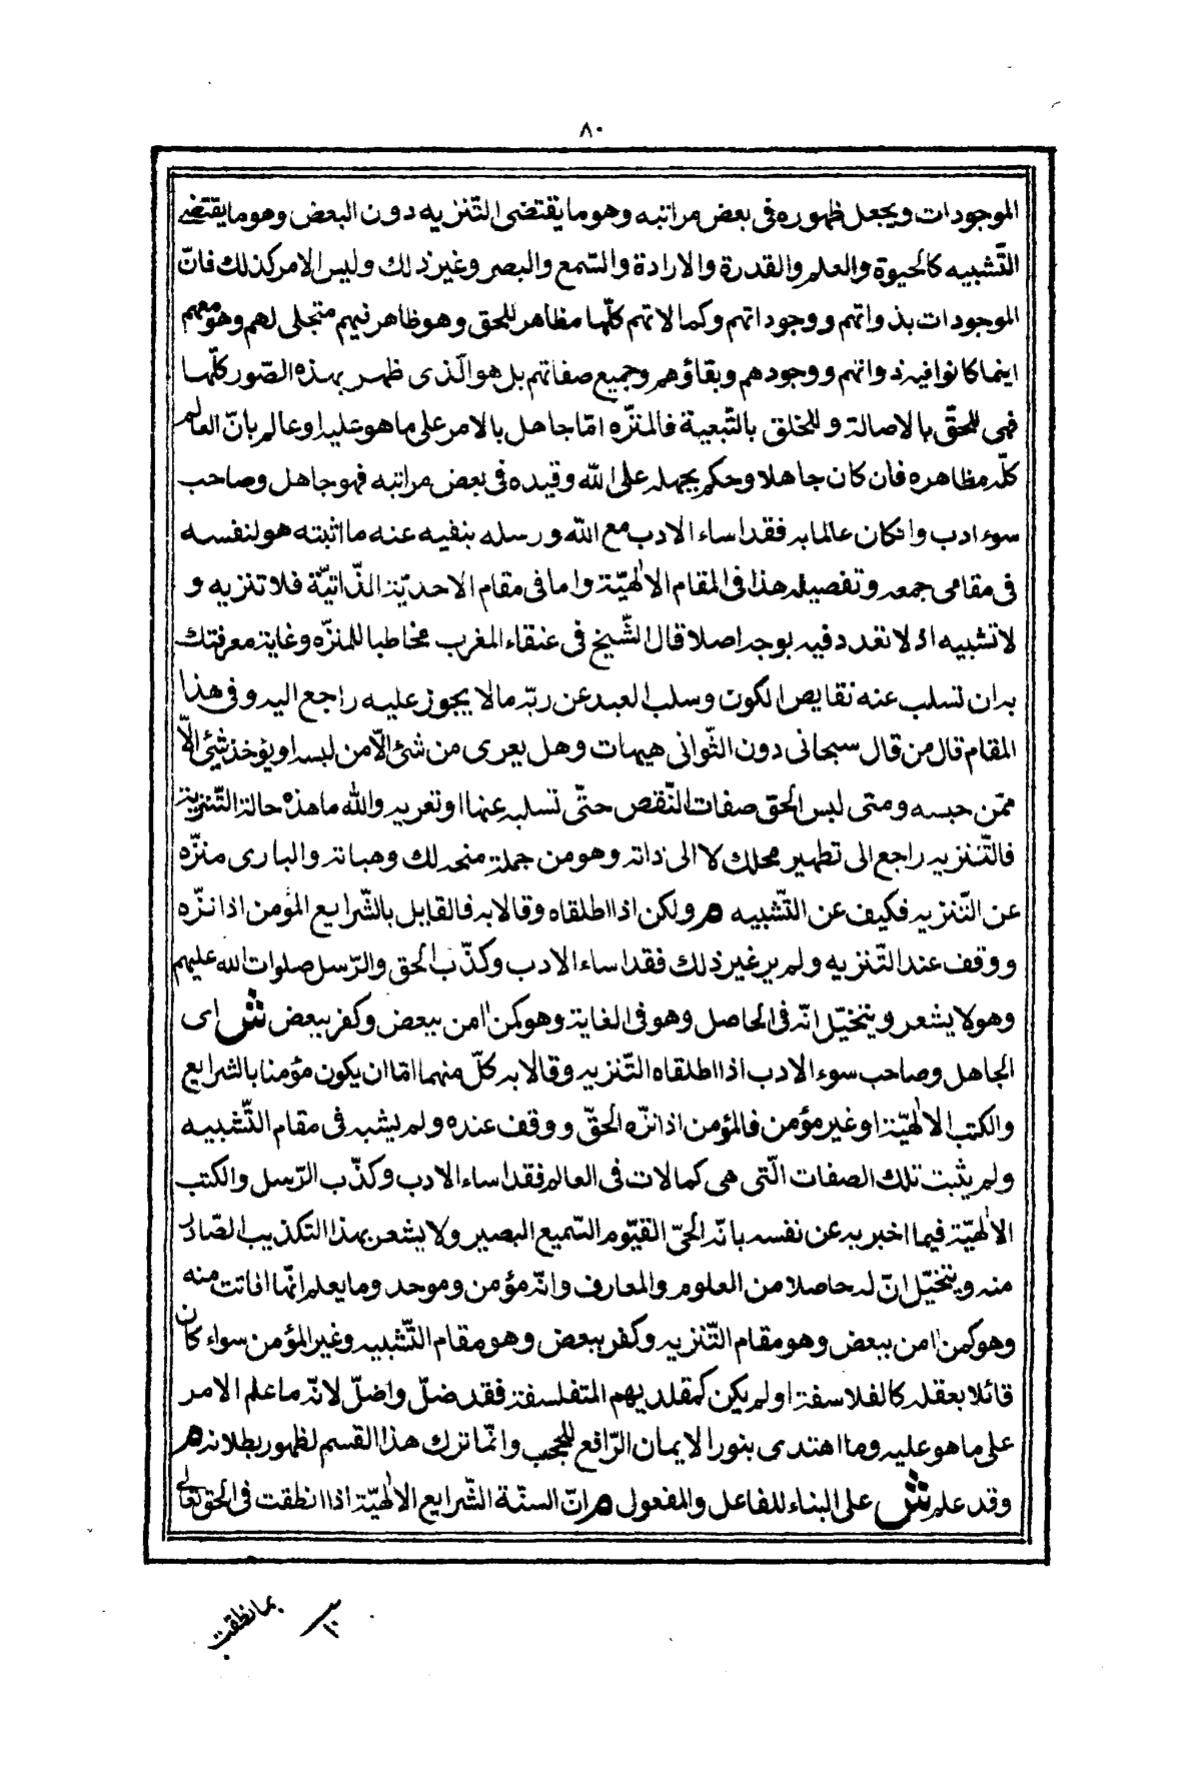 ٨٠
الموجودات ويجعل ظهوره فى بعض مراتبه وهو ما يقتضى التّنزيه دون البعض وهو ما يقتضى
التّشبيه كالحيوة والعلم والقدرة والارادة والسّمع والبصر وغير ذلك وليس الامر كذلك فانّ
الموجودات بذواتهم ووجوداتهم وكمالاتهم كلّها مظاهر للحق وهو ظاهر فيهم متجلى لهم وهو معهم
اينما كانوا فهى ذواتهم ووجودهم وبقاؤهم وجميع صفاتهم بل هو الّذى ظهر بهذه الصّور كلّها
فهى للحقّ بالاصالة وللخلق بالتّبعية فالمنزّه امّا جاهل بالامر على ما هو عليه او عالم بانّ العالم
كلّه مظاهره فان كان جاهلا وحكم بجهله على الله وقيده فى بعض مراتبه فهو جاهل وصاحب
سوء ادب وان كان عالما به فقد اساء الادب مع الله ورسله بنفيه عنه ما اثبته هو لنفسه
فى مقامى جمعه وتفصيله هذا فى المقام الالٰهيّة واما فى مقام الاحديّة الذّاتيّة فلا تنزيه و
لا تشبيه اذ لا تعدد فيه بوجه اصلا قال الشّيخ فى عنقاء المغرب مخاطبا للمنزّه وغاية معرفتك
به ان تسلب عنه نقايص الكون وسلب العبد عن ربّه ما لا يجوز عليه راجع اليه وفى هذا
المقام قال من قال سبحانى دون الثّوانى هيهات وهل يعرى من شئ الّا من لبسه او يؤخذ شئ الّا
ممّن حبسه ومتى لبس الحق صفات النّقص حتّى تسلبه عنها او تعريه والله ما هذه حالة التّنزيه
فالتّنزيه راجع الى تطهير محلك لا الى ذاته وهو من جملة منحه لك وهباته والبارى منزّه
عن التّنزيه فكيف عن التّشبيه م ولكن اذا اطلقاه وقالا به فالقايل بالشّرايع المؤمن اذا نزّه
ووقف عند التّنزيه ولم ير غير ذلك فقد اساء الادب وكذّب الحق والرّسل صلوات الله عليهم
وهو لا يشعر ويتخيّل انّه فى الحاصل وهو فى الغاية وهو كمن اٰمن ببعض وكفر ببعض ش اى
الجاهل وصاحب سوء الادب اذا اطلقاه التّنزيه وقالا به كلّ منهما امّا ان يكون مؤمنا بالشرايع
والكتب الالٰهيّة او غير مؤمن فالمؤمن اذا نزّه الحقّ ووقف عنده ولم يشبه فى مقام التّشبيه
ولم يثبت تلك الصفات الّتى هى كمالات فى العالم فقد اساء الادب وكذّب الرّسل والكتب
الالٰهيّة فيما اخبر به عن نفسه بانّه الحىّ القيّوم السّميع البصير ولا يشعر بهذا التكذيب الصّادر
منه ويتخيّل انّ له حاصلا من العلوم والمعارف وانّه مؤمن وموحد وما يعلم انّها فاتت منه
وهو كمن اٰمن ببعض وهو مقام التّنزيه وكفر ببعض وهو مقام التّشبيه وغير المؤمن سواء كان
قائلا بعقله كالفلاسفة او لم يكن كمقلديهم المتفلسفة فقد ضلّ واضلّ لانّه ما علم الامر
على ما هو عليه وما اهتدى بنور الايمان الرّافع للحجب وانّما ترك هذا القسم لظهور بطلانه م
وقد علم ش على البناء للفاعل والمفعول م انّ السنة الشّرايع الالٰهيّة اذا نطقت فى الحق تعالى
بما نطقت